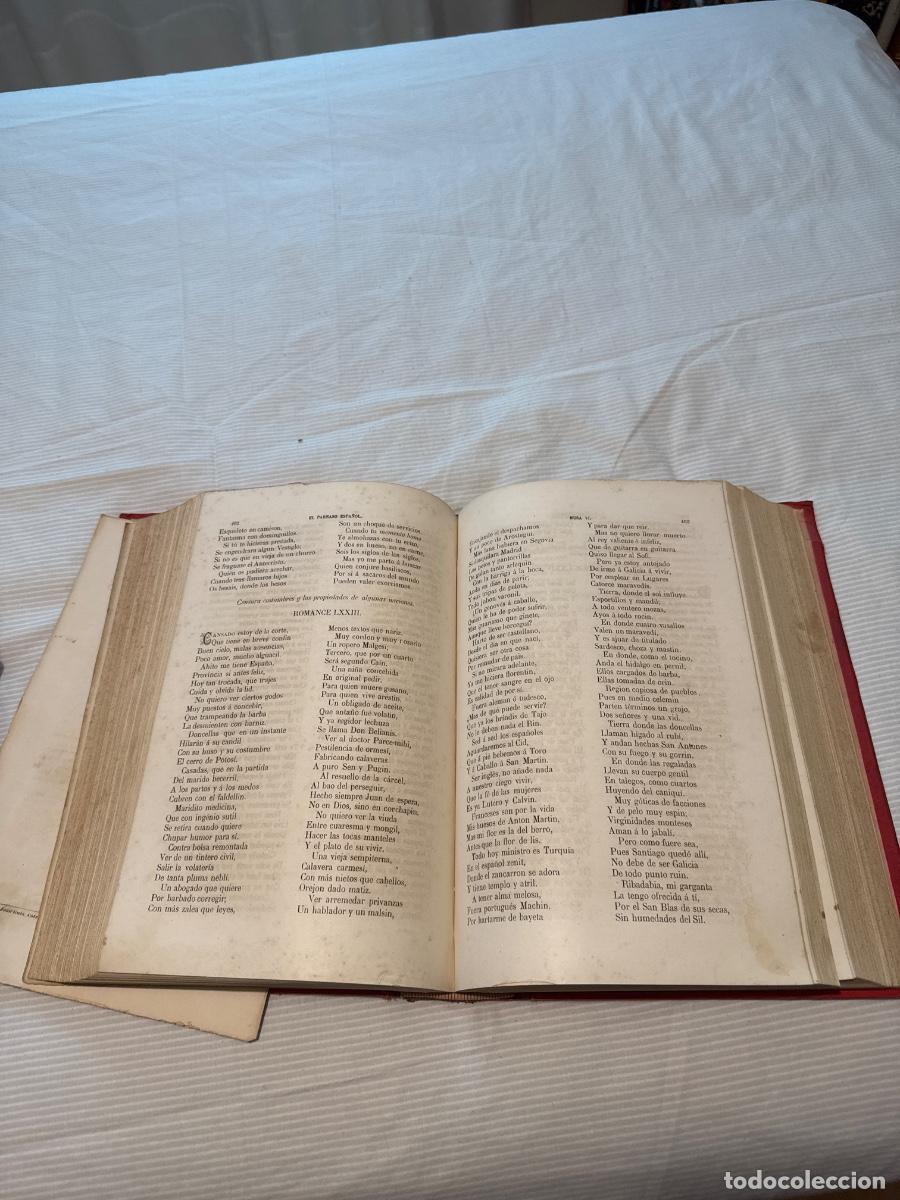 402
EL PARNASO ESPAÑOL.
Esqueleto en camison,
Fantasma con dominguillos.
Si tú te hicieras preñada,
Se engendrara algun Vestiglo;
Si no es que en vieja de un churro
Se fraguase el Antecristo.
Quien os pudiera acechar,
Cuando tese llamares hijos
Os besais, donde los besos
Son un choque de servicios.
Cuando tu memento homo
Te almohazas con tu ecino,
Y dos en hueso, no en carne,
Sois los siglos de los siglos.
Mas yo me parto á buscar
Quien conjure basiliscos,
Por si á sacaros del mundo
Pueden valer exorcismos.
Censura costumbres y las propiedades de algunas naciones.
ROMANCE LXXIII.
CANSADO estoy de la corte,
Que tiene en breve confin
Buen cielo, malas ausencias,
Poco amor, mucho alguacil.
Ahito me tiene España,
Provincia si antes feliz,
Hoy tan trocada, que trajes
Cuida y olvida la lid.
No quiero ver ciertos godos
Muy puestos á concebir,
Que trampeando la barba
La desmienten con barniz.
Doncellas que en un instante
Hilarán á su candil
Con su huso y su costumbre
El cerro de Potosí.
Casadas, que en la partida
Del marido becerril,
A los partos y á los medos
Cubren con el faldellin.
Maridito medicina,
Que con ingenio sutil
Se retira cuando quiere
Chupar humor para sí.
Contra bolsa remontada
Ver de un tintero civil,
Salir la volatería
De tanta pluma neblí.
Un abogado que quiere
Por barbado corregir;
Con más zalea que leyes,
Menos textos que nariz.
Muy conlon y muy rosario
Un ropero Malgesí;
Tercero, que por un cuarto
Será segundo Cain.
Una niña concebida
En original pedir,
Para quien muere gusano,
Para quien vive arestin.
Un obligado de aceite,
Que antaño fué volatin,
Y ya regidor lechuza
Se llama Don Belianis.
Ver al doctor Parce-mihi,
Pestilencia de ormesí,
Fabricando calaveras
A puro Sen y Pugin.
Al resuello de la cárcel,
Al bao del perseguir,
Hecho siempre Juan de espera,
No en Dios, sino en corchapin.
No quiero ver la viuda
Entre cuaresma y mongil,
Hacer las tocas manteles
Y el plato de su vivir.
Una vieja sempiterna,
Calavera carmesí,
Con más nietos que cabellos,
Orejon dado matiz.
Ver arremedar privanzas
Un hablador y un malsin,
MUSA VI.
403
despachamos
Y tal poce de Arostegui.
Mas lana hubiera en Segovia
Madrid
pelos y pantorrillas
tanto arlequin.
Con la barriga á la boca,
Anda en dias de parir,
Y son tripas de pelota,
Todo jubon varonil.
¿Un ginovés á caballo,
Quién le ha de poder sufrir,
Mas guarismo que ginete,
Aunque lleve borceguí?
Harto de ser castellano,
Desde el dia en que nací,
Quisiera ser otra cosa
Por remudar de país.
Si no mirara adelante,
Ya me hiciera florentin,
Que el tener sangre en el ojo
Es calidad de por sí.
Fuera aleman ó tudesco,
¿Mas de qué puede servir?
Que ya los brindis de Tajo
No le deben nada el Rin.
Sed á sed los españoles
Aguardaremos al Cid,
Que á pié bebemos á Toro
Y á Caballo á San Martin.
Ser inglés, no añade nada
A nuestro ciego vivir,
Que la fé de las mujeres
Es ya Lutero y Calvin.
Franceses son por la vida
Mis huesos de Anton Martin,
Mas mi flor es la del berro,
Antes que la flor de lis.
Todo hoy ministro es Turquía
En el español zenit,
Donde el zancarron se adora
Y tiene templo y atril.
A tener alma melosa,
Fuera portugués Machin,
Por hartarme de bayeta
Y para dar que reir.
Mas no quiero llorar, muerto
Al rey valiente ó infeliz,
Que de guitarra en guitarra
Quiso llegar al Sofí.
Pero ya estoy antojado
De irme á Galicia á vivir,
Por emplear en Lugares
Catorce maravedís.
Tierra, donde el sol influye
Espetillos y mandil;
A todo ventero mozas,
Ayos á todo rocin.
En donde cuatro vasallos
Valen un maravedí,
Y es ajuar de titulado
Sardesco, choza y mastin.
En donde, como el tocino,
Anda el hidalgo en pernil,
Ellos cargados de barba,
Ellas tomadas de orin.
Region copiosa de pueblos,
Pues en medio celemin
Parten términos un grajo,
Dos señores y una vid.
Tierra donde las doncellas
Llaman hígado al rubí,
Y andan hechas San Antones
Con su fuego y su gorrin.
En donde las regaladas
Llevan su cuerpo gentil
En talegos, como cuartos
Huyendo del caniquí.
Muy góticas de facciones
Y de pelo muy espin;
Virginidades monteses
Aman á lo jabalí.
Pero como fuere sea,
Pues Santiago quedó allí,
No debe de ser Galicia
De todo punto ruin.
Ribadabia, mi garganta
La tengo ofrecida á tí,
Por el San Blas de sus secas,
Sin humedades del Sil.
todocoleccion